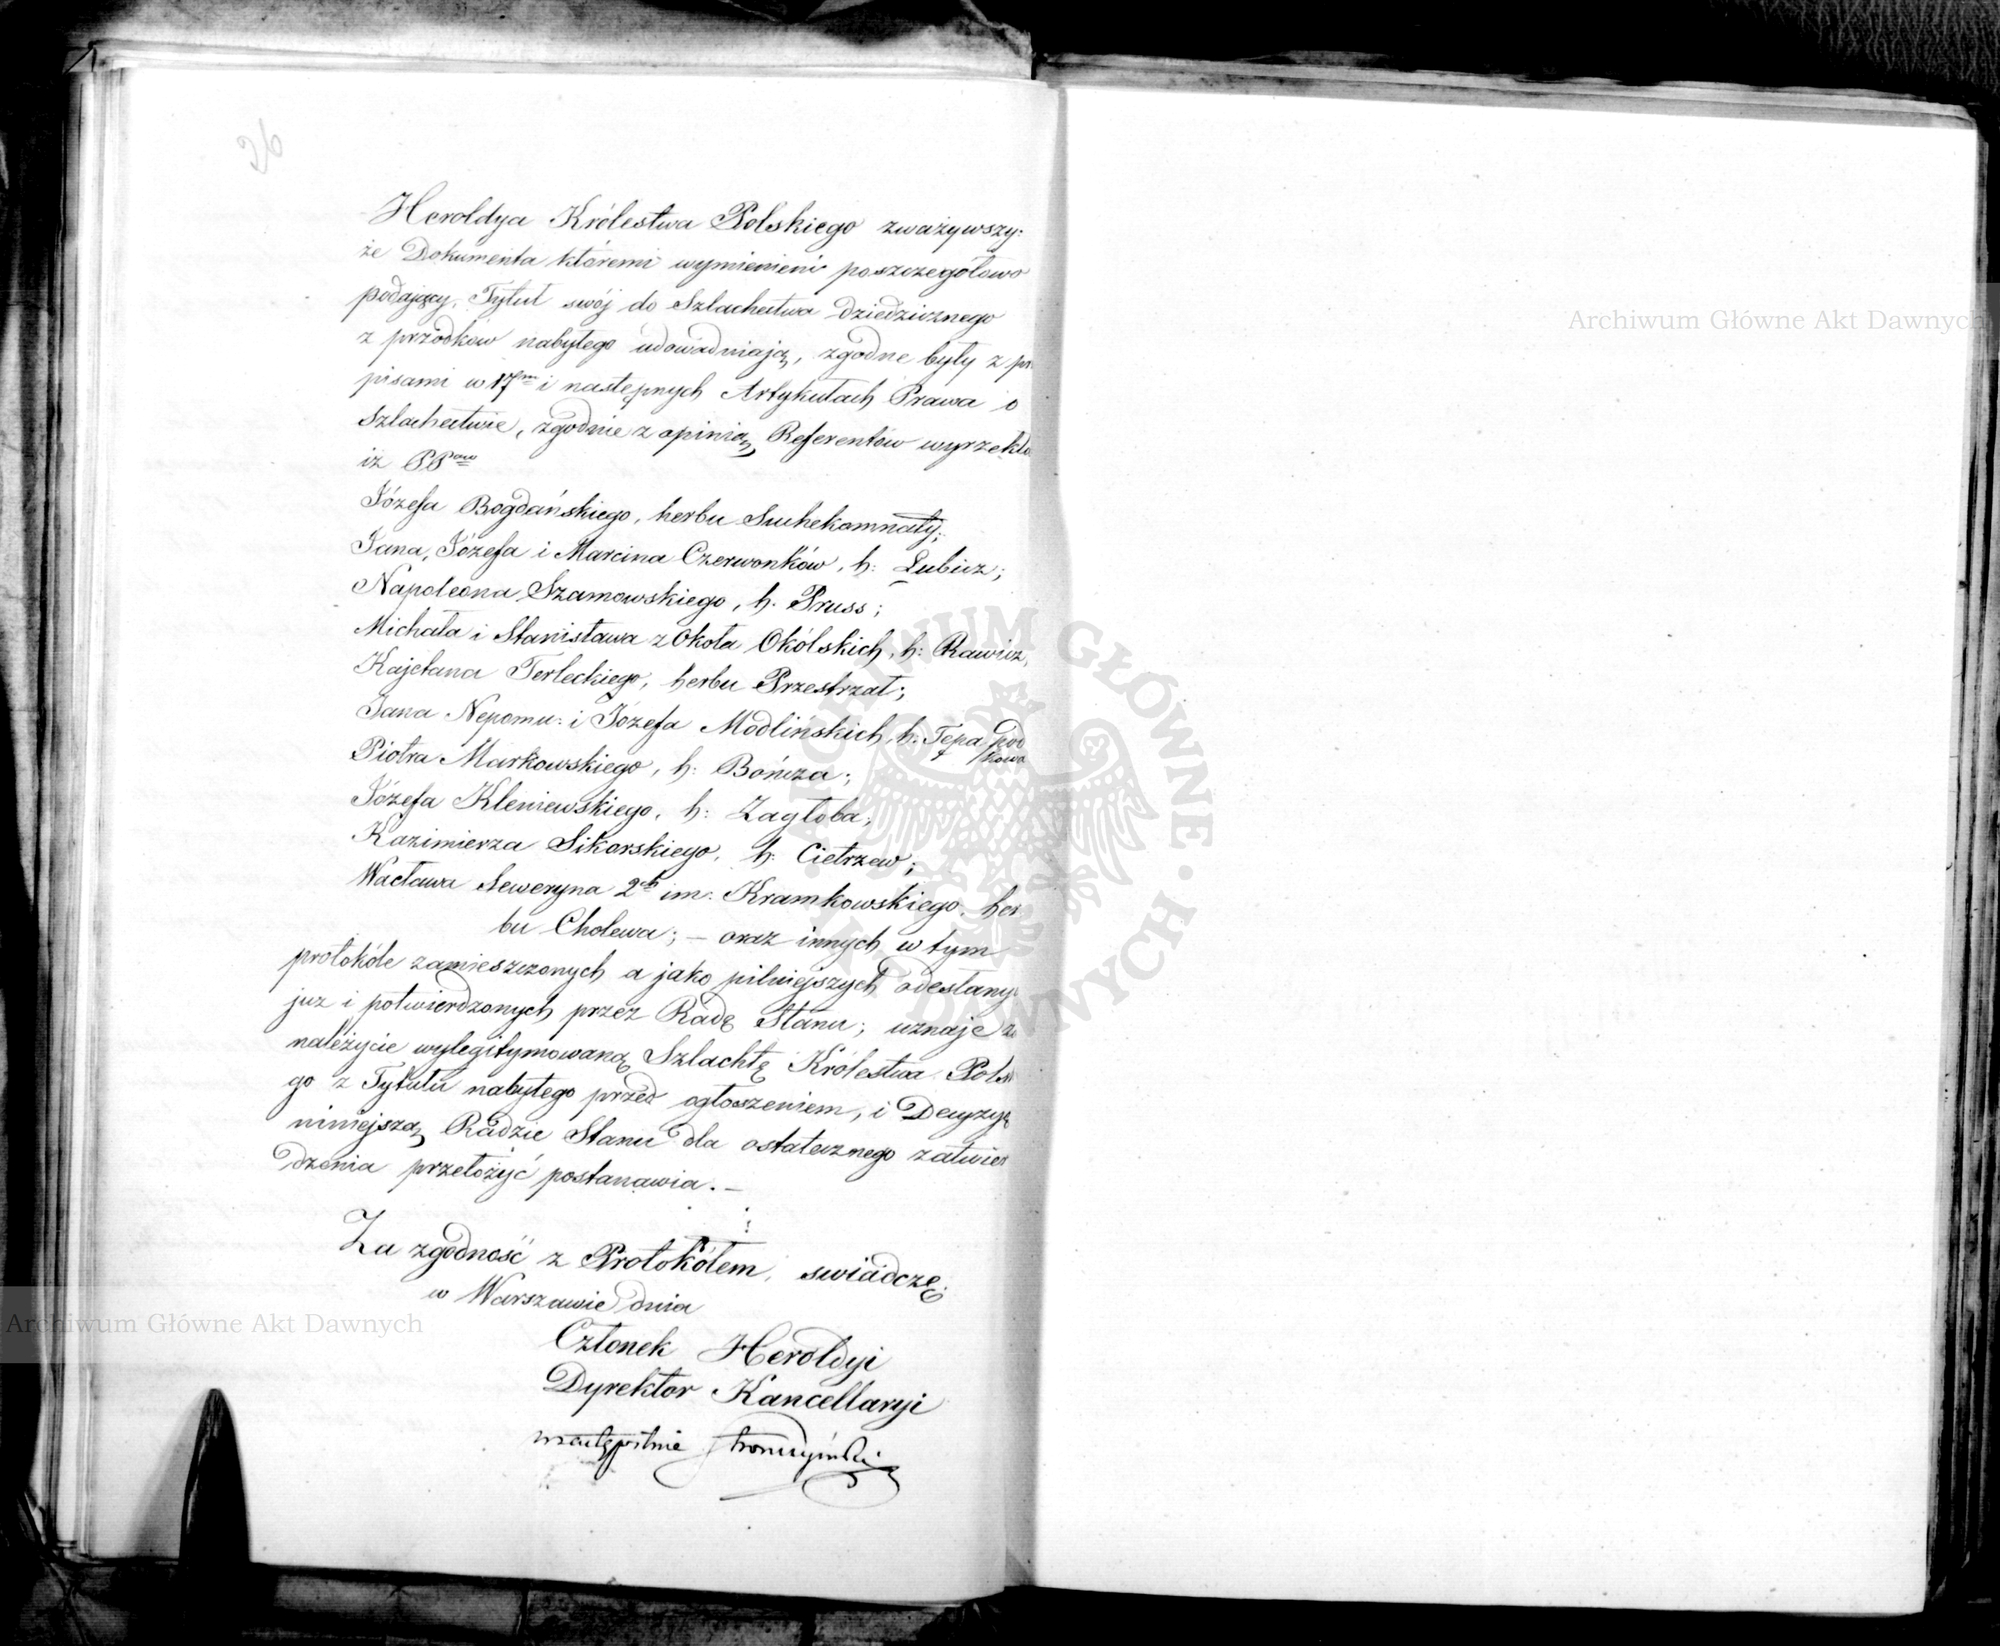 26
Heroldya Królestwa Polskiego zważywszy:
że Dokumenta któremi wymienieni poszczegółowo
podający, Tytuł swój do Szlachectwa dziedzicznego
z przodków nabytego udowadniają, zgodne były z prz
pisami w 17m i następnych Artykułach Prawa o
Szlachectwie, zgodnie z opinią Referentów wyrzekła
iż PPow
Józefa Bogdańskiego, herbu Suchekomnaty;
Jana, Józefa i Marcina Czerwonków, h: Lubicz;
Napoleona Szamowskiego, h. Pruss;
Michała i Stanisława z Okoła Okólskich, h: Rawicz,
Kajetana Terleckiego, herbu Przestrzał;
Jana Nepomu: i Józefa Modlińskich, h: Tępa pod
kowa
Piotra Markowskiego, h: Bończa;
Józefa Kleniewskiego, h: Zagłoba;
Kazimierza Sikorskiego, h: Cietrzew;
Wacława Seweryna 2ch im: Kramkowskiego, her
bu Cholewa; – oraz innych w tym
protokóle zamieszczonych a jako pilniejszych odesłany
już i potwierdzonych przez Radę Stanu; uznaje za
należycie wylegitymowaną Szlachtę Królestwa Pols
go z Tytułu nabytego przed ogłoszeniem, i Decyzyę
niniejszą Radzie Stanu dla ostatecznego zatwier
dzenia przełożyć postanawia. –
Za zgodność z Protokółem, swiadczę:
w Warszawie dnia
Członek Heroldyi
Dyrektor Kancellaryi
Stronczyński
Archiwum Główne Akt Dawnych
Archiwum Główne Akt Dawnych
ARCHIWUM GŁÓWNE AKT DAWNYCH